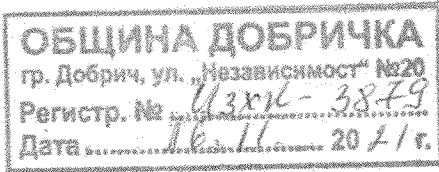 ОБЩИНА ДОБРИЧКА
гр. Добрич, ул. „Независимост“ №20
Регистр. № ИзхК - 3879
Дата 16.11 2021 г.